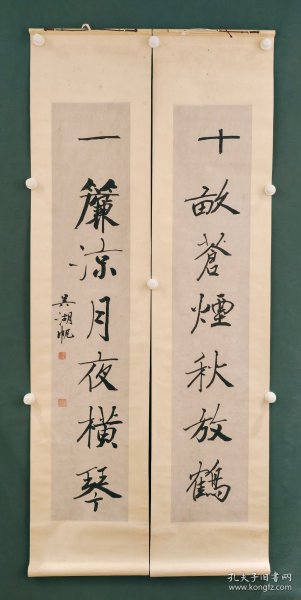 十畝蒼煙秋放鶴
一簾涼月夜橫琴
吳湖帆
孔夫子旧书网
www.kongfz.com